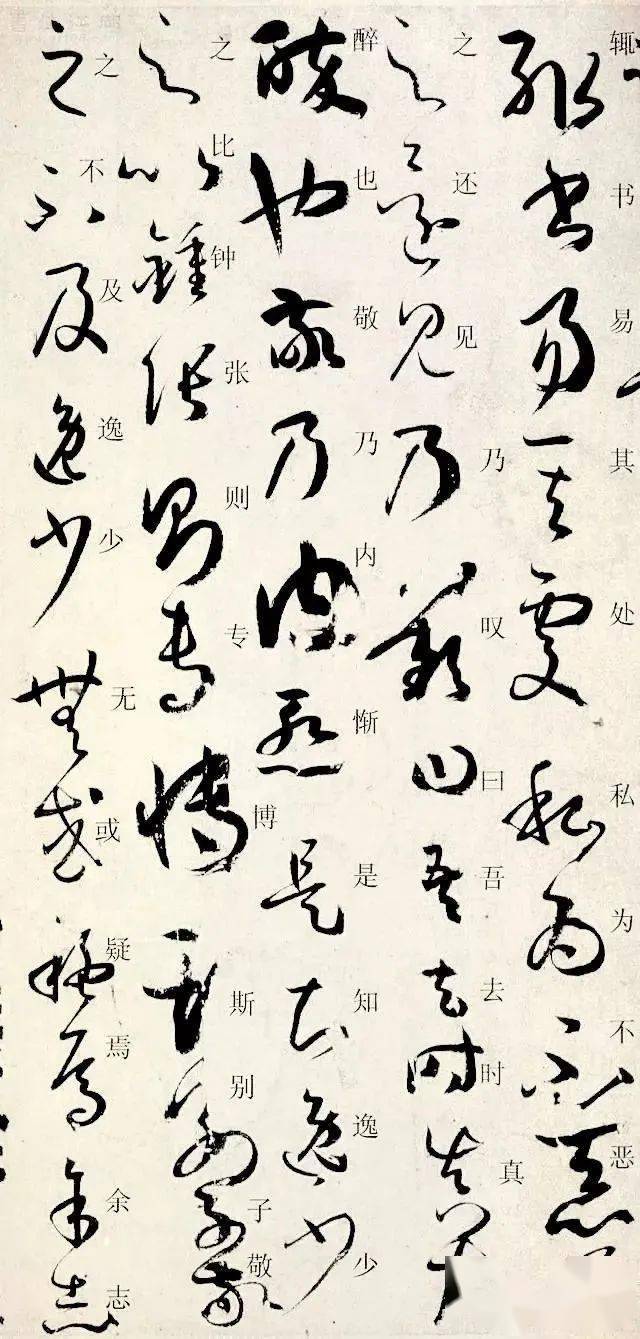 辄书易其处私为不恶
之还见乃叹曰吾去时真
醉也敬乃内惭是知逸少
之比钟张则专博斯别子敬
之不及逸少无或疑焉余志